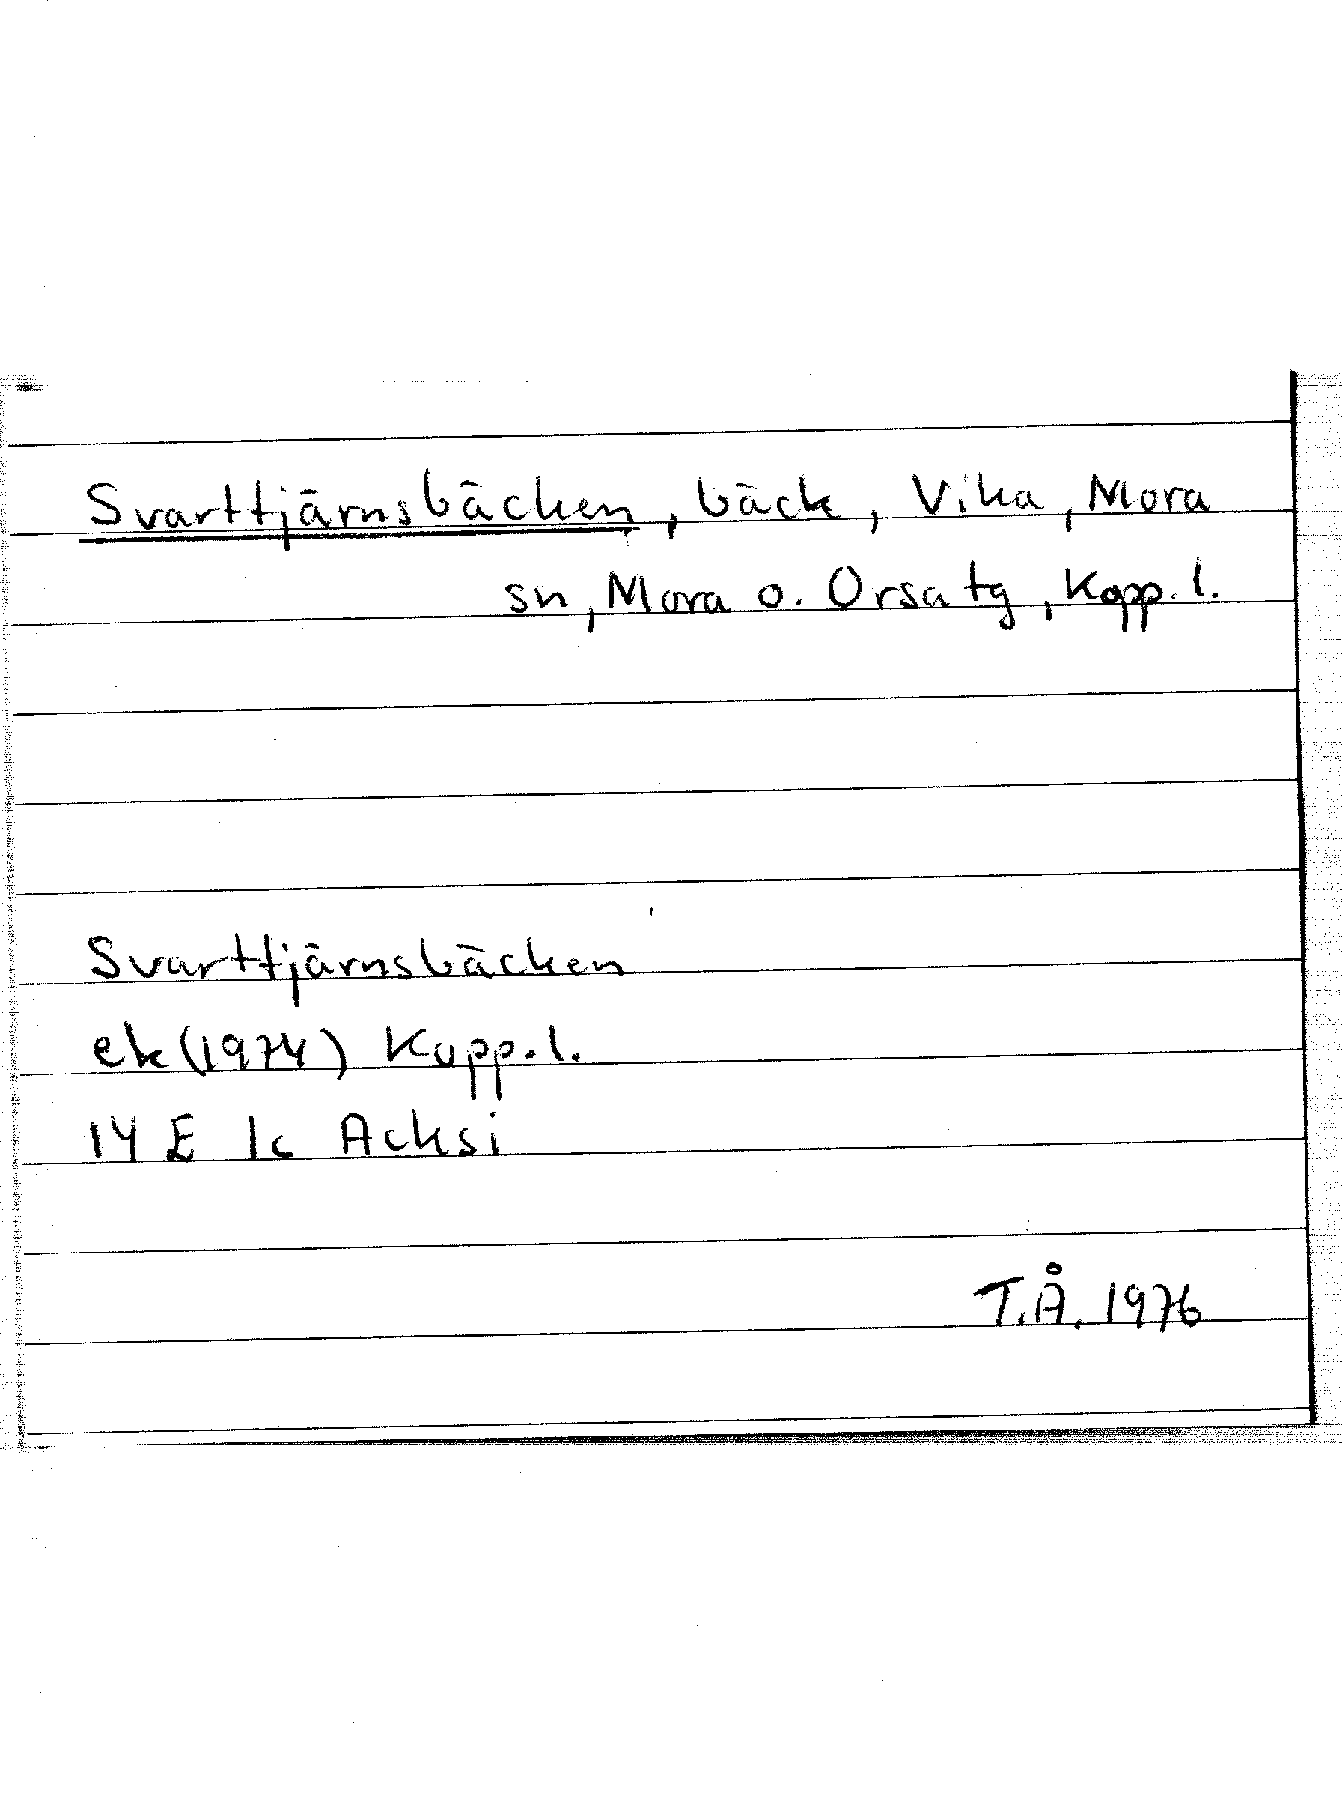 Svarttjärnsbäcken, bäck, Vika, Mora
sn, Mora o. Orsa tg, Kopp. l.
Svarttjärnsbäcken
ek (1974) Kopp. l.
14 E 1c Acksi
T.Å. 1976